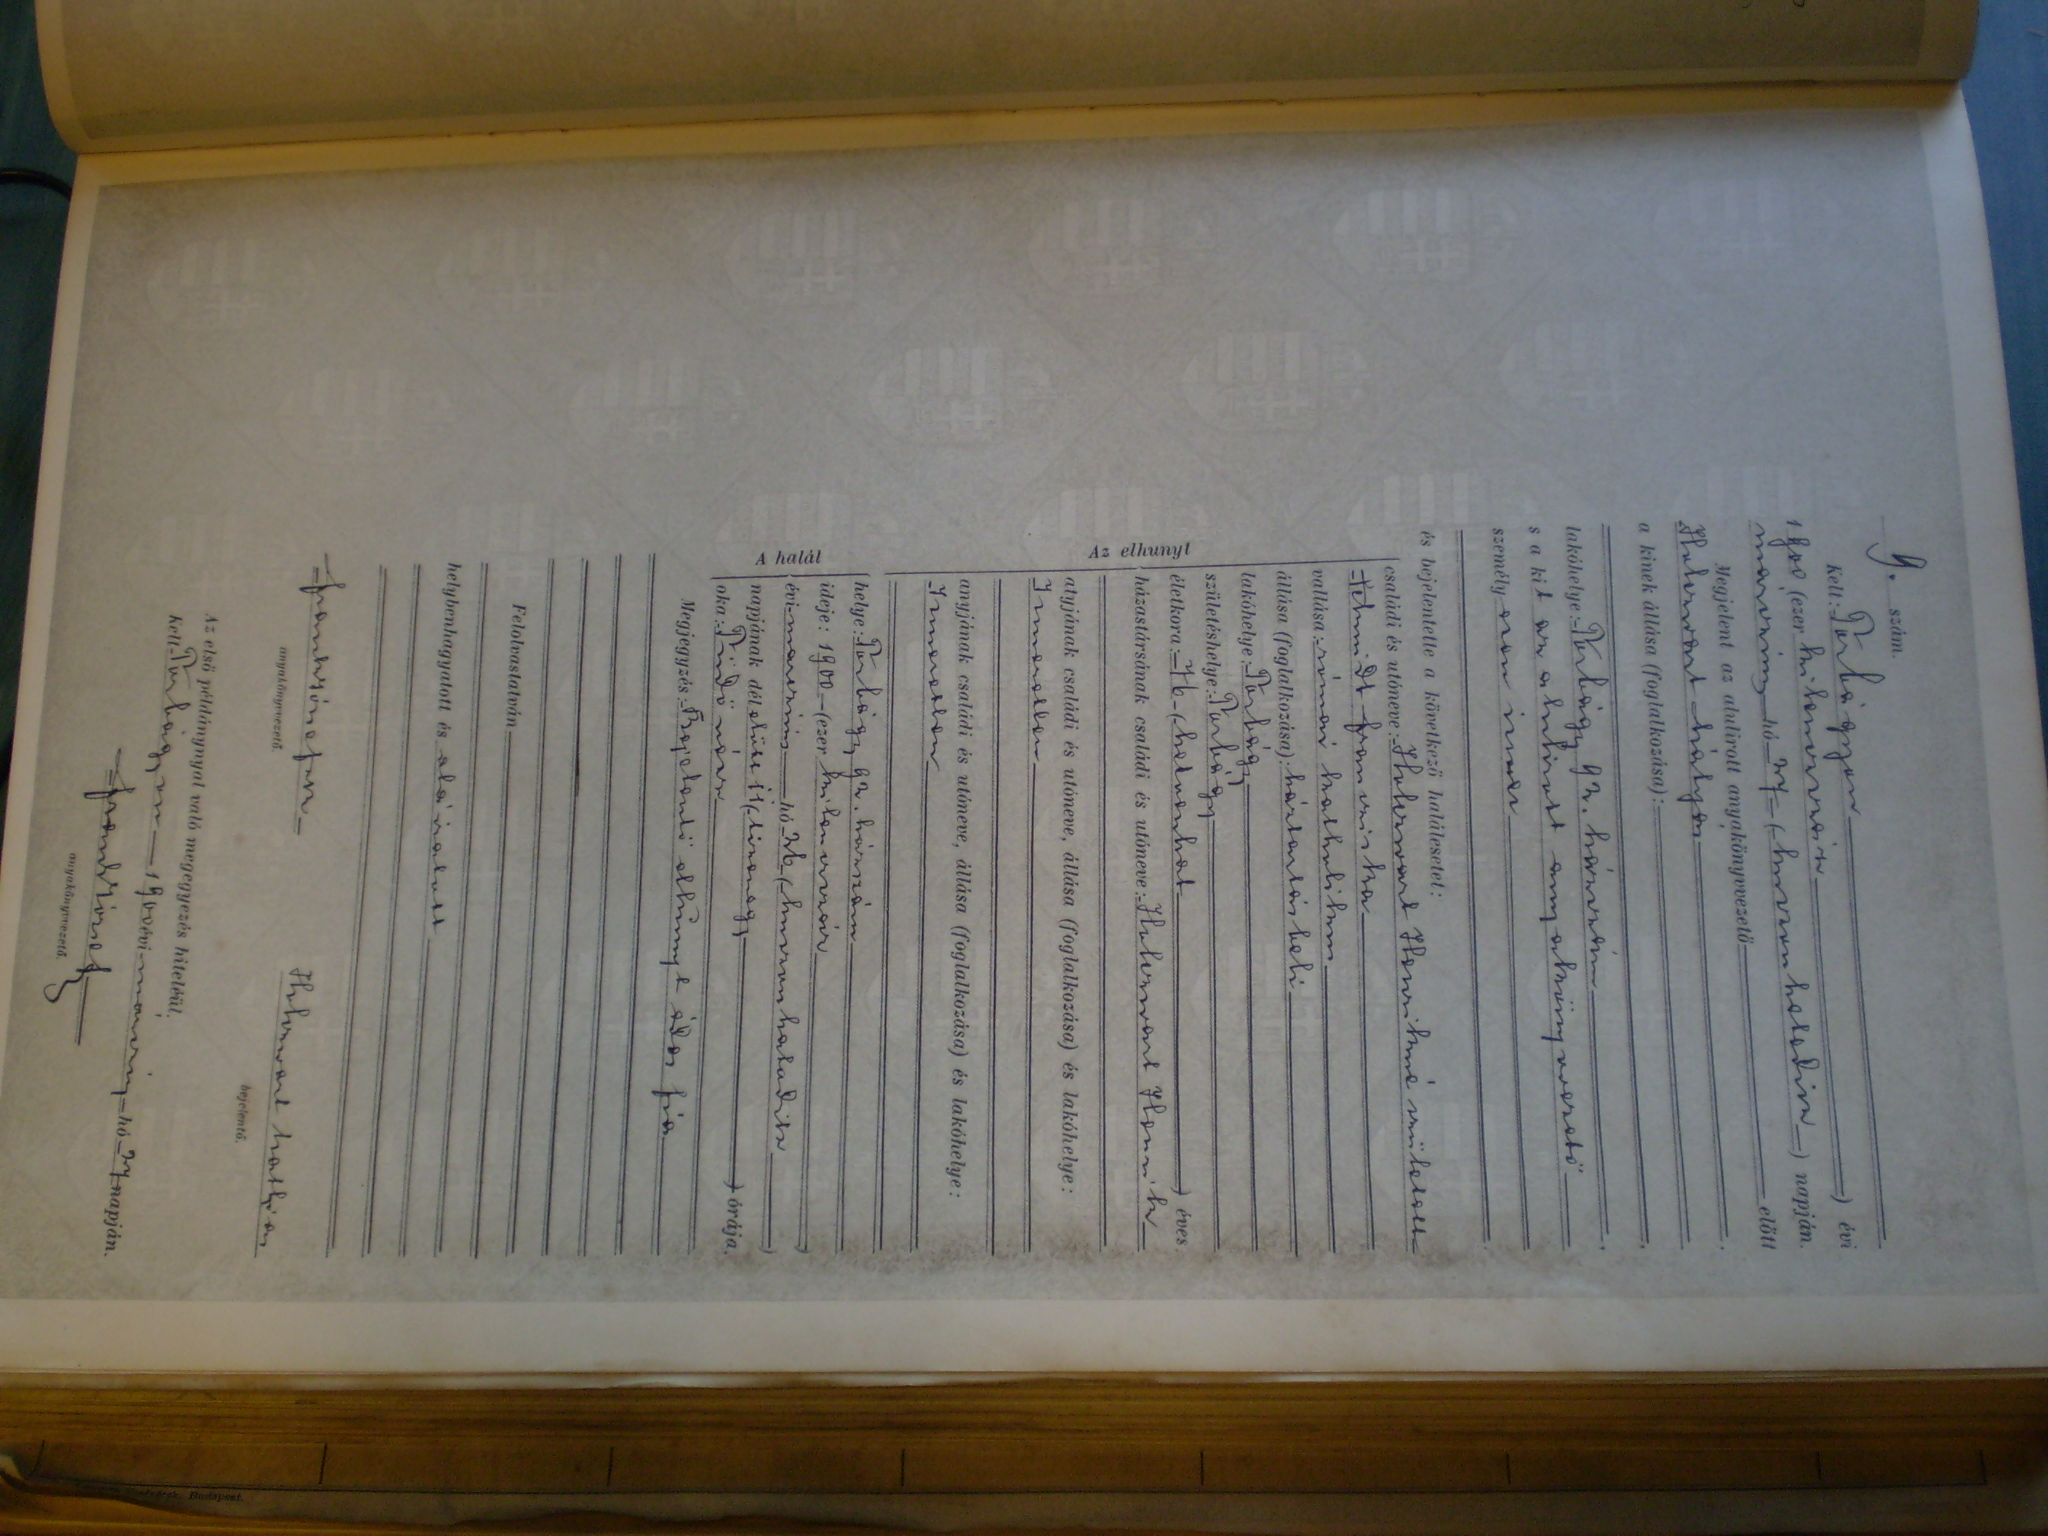 9. szám.
Kelt: Torbágyon ) évi
1900 (ezer kilencszáz
márczius hó 27 (huszonhetedik ) napján.
Megjelent az alulirott anyakönyvezető előtt
Hubervart Mátyás ,
a kinek állása (foglalkozása): ,
lakóhelye: Torbágy 92. házszám ,
s a kit az alulirott anyakönyvvezető
személyesen ismer
és bejelentette a következő halálesetet:
Az elhunyt
családi és utóneve: Hubervart Henrikné született
Schmidt Francziska
vallása: római katholikus
állása (foglalkozása): háztartásbeli
lakóhelye: Torbágy
születéshelye: Torbágy
életkora: 76 (hetvenhat ) éves
házastársának családi és utóneve: Hubervart Henrik
atyjának családi és utóneve, állása (foglalkozása) és lakóhelye:
Ismeretlen
anyjának családi és utóneve, állása (foglalkozása) és lakóhelye:
Ismeretlen
A halál
helye: Torbágy 92. házszám
ideje: 1900 (ezer kilencszáz )
évi márczius hó 26 (huszonhatodik )
napjának délelőtt 11 (tizenegy ) órája.
oka: Tüdővész
Megjegyzés: Bejelentő elhunyt édes fia
Felolvastatván,
helybenhagyatott és aláiratott
anyakönyvvezető.
Hubervart Mathias
bejelentő.
Az első példánynyal való megegyezés hiteléül.
Kelt: Torbágyon 1900 évi márczius hó 27 napján.
anyakönyvvezető.
Budapest.